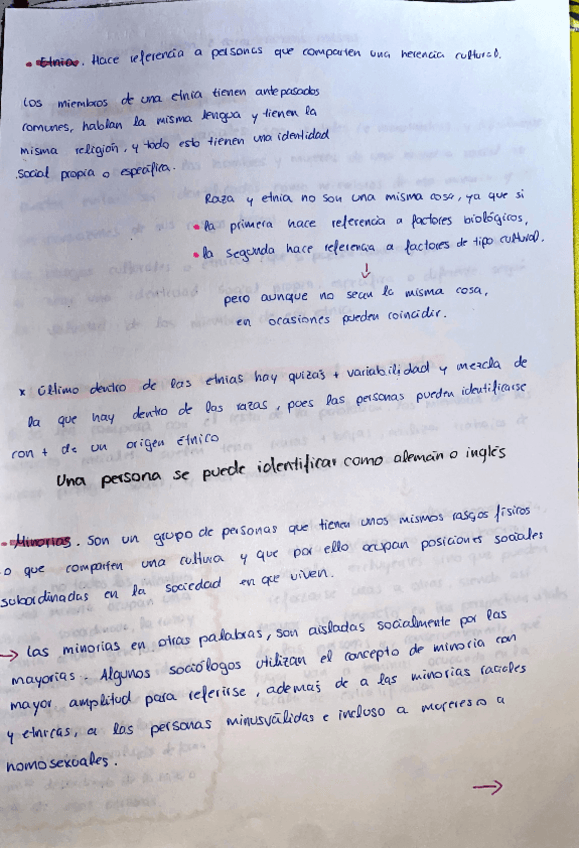 • Etnia. Hace referencia a personas que comparten una herencia cultural.
Los miembros de una etnia tienen antepasados
comunes, hablan la misma lengua y tienen la
misma religión, y todo esto tienen una identidad
social propia o específica.
Raza y etnia no son una misma cosa, ya que si
• la primera hace referencia a factores biológicos,
• la segunda hace referencia a factores de tipo cultural.
↓
pero aunque no sean la misma cosa,
en ocasiones pueden coincidir.
x Último dentro de las etnias hay quizás + variabilidad y mezcla de
la que hay dentro de las razas, pues las personas pueden identificarse
con + de un origen étnico
Una persona se puede identificar como alemán o inglés
- Minorias. Son un grupo de personas que tienen unos mismos rasgos físicos
o que comparten una cultura y que por ello ocupan posiciones sociales
subordinadas en la sociedad en que viven.
→ Las minorias en otras palabras, son aisladas socialmente por las
mayorias. Algunos sociólogos utilizan el concepto de minoria con
mayor amplitud para referirse, además de a las minorias raciales
y etnicas, a las personas minusválidas e incluso a mujeres o a
homosexuales.
→